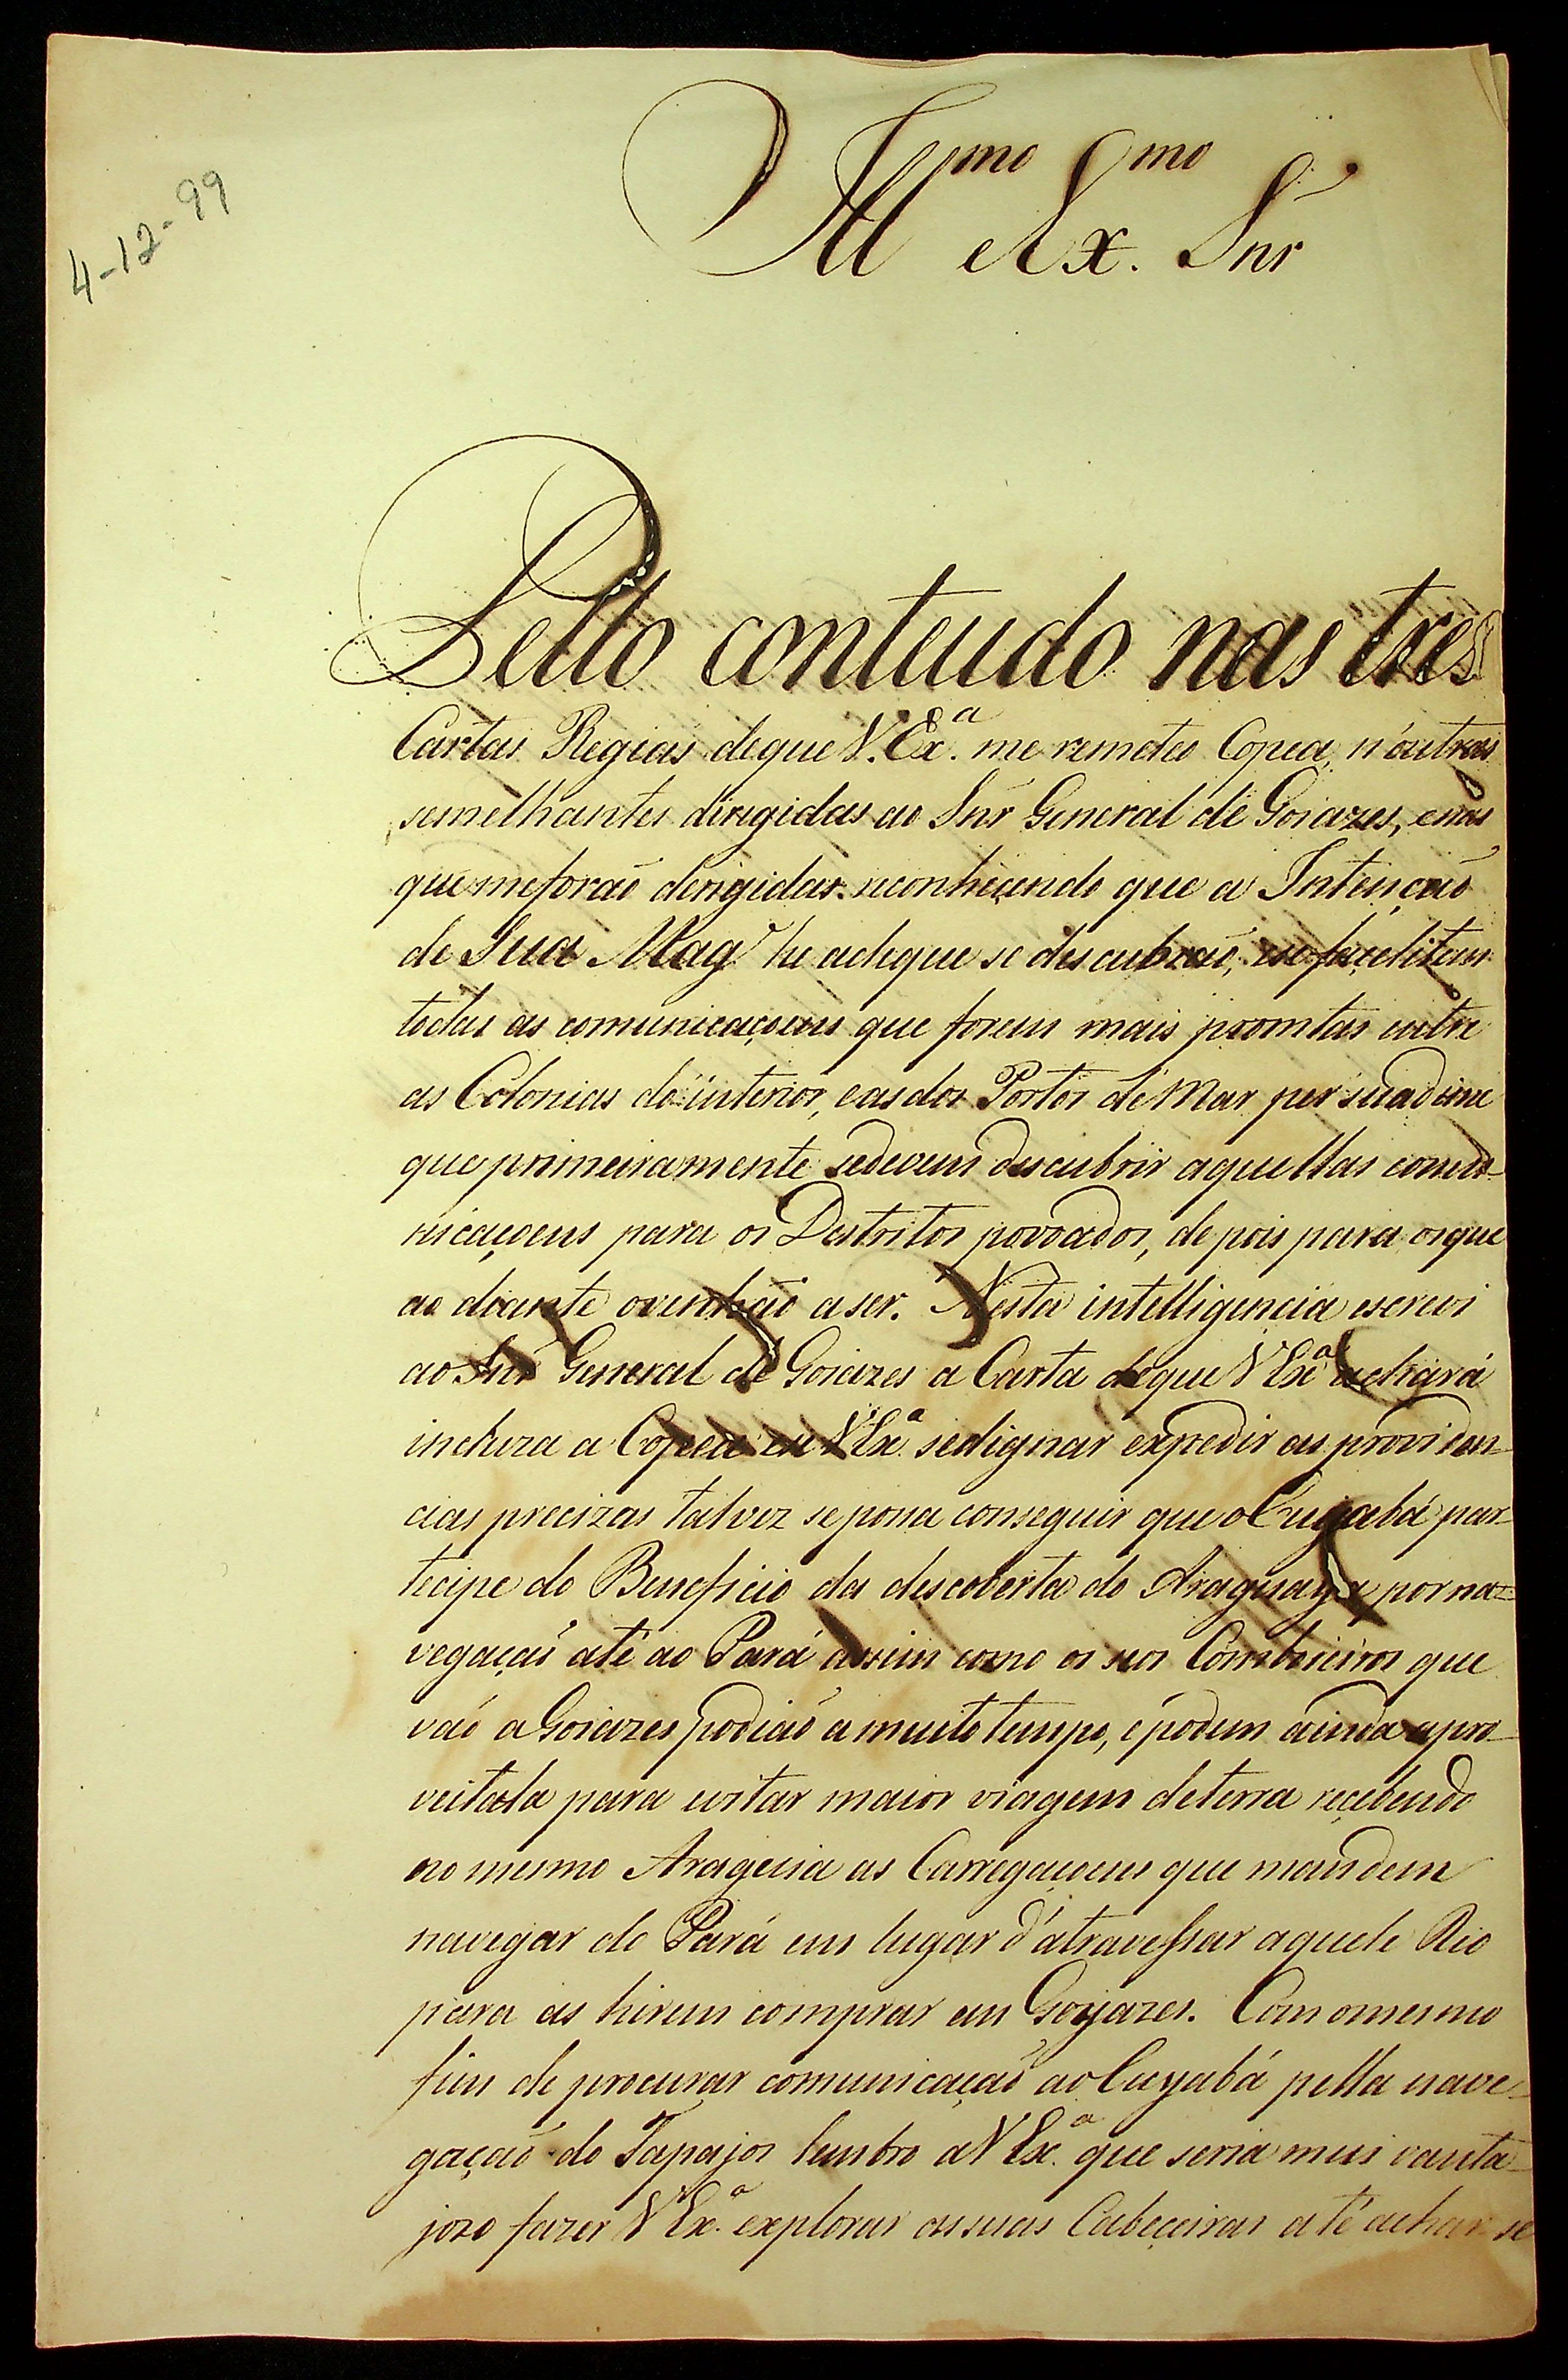 4-12-99
Ill.mo e Ex.mo Snr
Pello conteudo nas tres
Cartas Regias deque V. Ex.a me remeteo Copea, n'outras
semelhantes dirigidas ao Snr General de Goiazes, enas
que meforaõ derigidas. reconheçendo que a Intençaõ
de Sua Mag.e he adeque se descubraõ, ese façelitem
todas as comunicaçoens que forem mais promtas entre
as Colonias do interior, easdos Portos de Mar persuadime
que primeiramente sedevem descubrir aquellas comu-
nicaçoens para os Destritos povoados, depois para osque
ao diante ovenhaõ aser. Nesta intelligencia escrevi
ao Snr General de Goiazes a Carta deque V Ex.a achará
incluza a Copea eu V Ex.a sedignar expedir as providen-
cias precizas talvez se possa conseguir que o Cuyabá par-
tecipe do Beneficio da descoberta do Araguaya por na-
vegaçaõ até ao Pará assim como os seos Comboieiros que
vaõ a Goiazes podiaõ a muito tempo, e podem ainda apro-
veitala para evitar maior viagem deterra reçebendo
no mesmo Araguia as Carregaçoens que mandem
navegar do Pará em lugar d'atravessar aquele Rio
para as hirem comprar em Goyazes. Com omesmo
fim de procurar comunicaçaõ ao Cuyabá pella nave-
gaçaõ do Tapajos lembro a V Ex.a que seria mui vanta-
jozo fazer V Ex.a explorar assuas Cabeçeiras até achar se